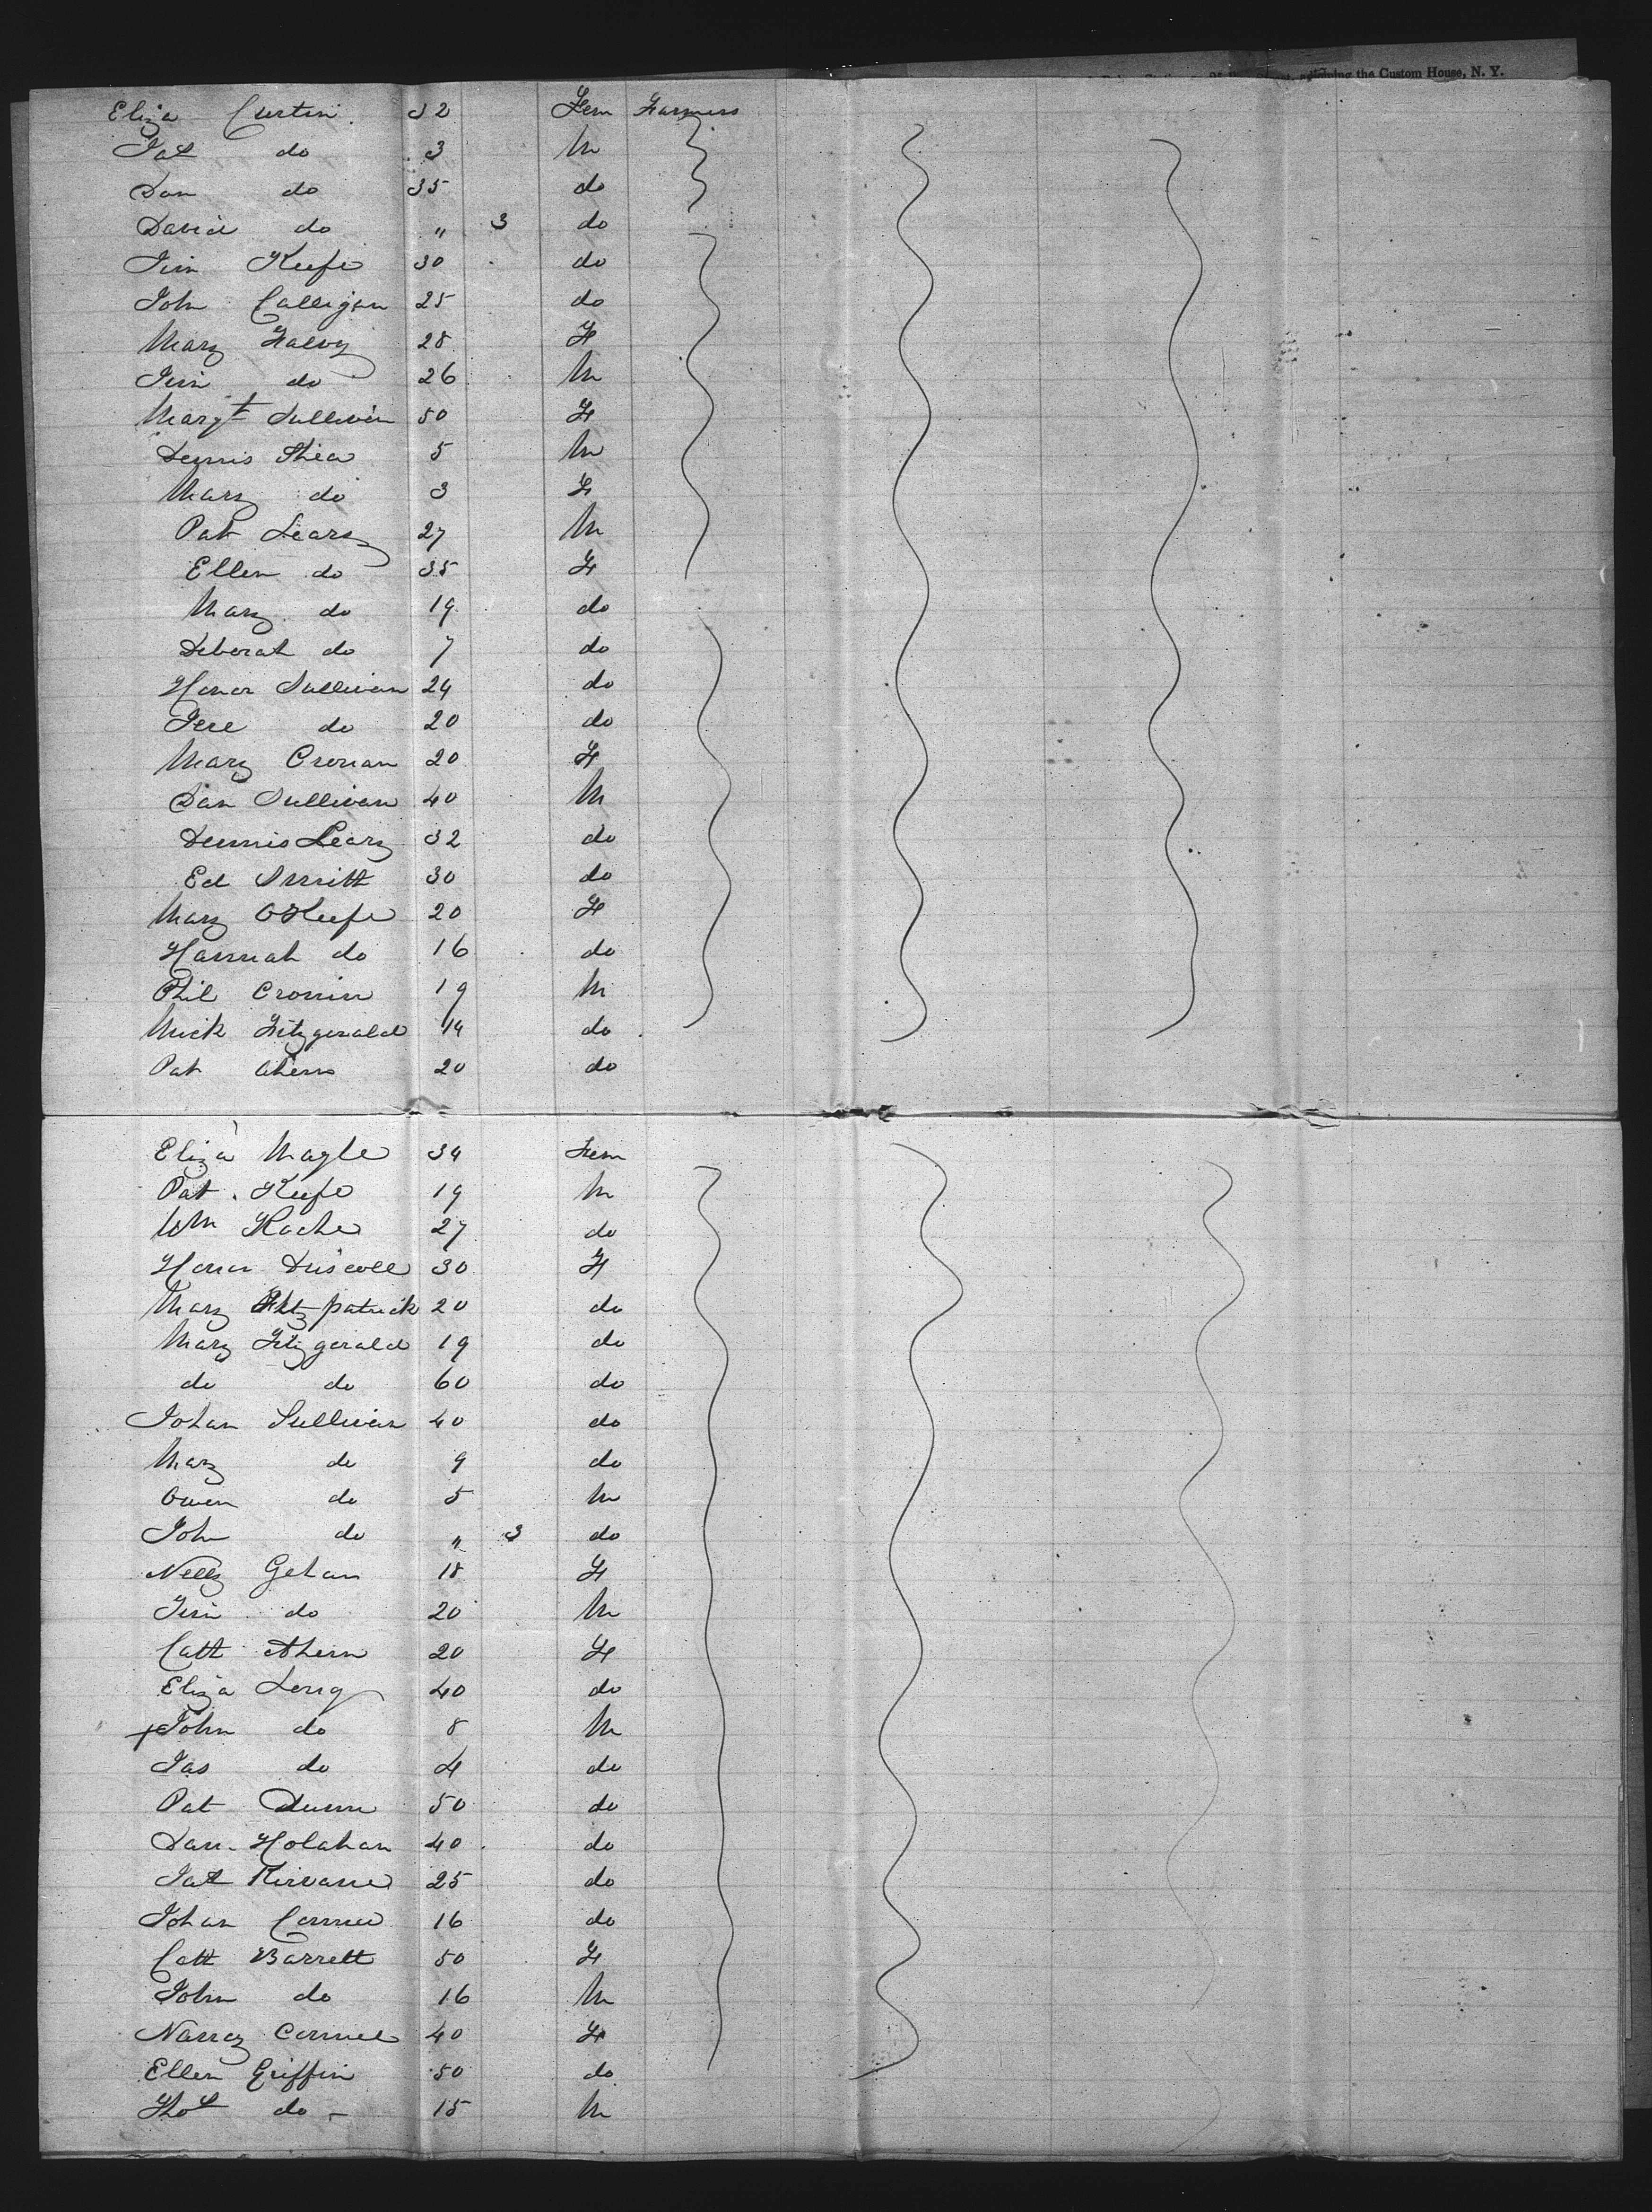 adjoining the Custom House, N. Y.
Eliza Curtin 32 Fem Farmers
Pat do 3 M
Dan do 35 do
David do " 3 do
Jim Keefe 30 do
John Calligan 25 do
Mary Falvy 28 F
Jim do 26 M
Margt Sullivan 50 F
Dennis Shea 5 M
Mary do 3 F
Pat Leary 27 M
Ellen do 35 F
Mary do 19 do
Deborah do 7 do
Honor Sullivan 24 do
Jere do 20 do
Mary Cronan 20 F
Dan Sullivan 40 M
Dennis Leary 32 do
Ed Smith 30 do
Mary O'Keefe 20 F
Hannah do 16 do
Phil Cronin 19 M
Mick Fitzgerald 14 do
Pat Ahern 20 do
Eliza Nagle 34 Fem
Pat. Keefe 19 M
Wm Roche 27 do
Honor Driscoll 30 F
Mary Fitzpatrick 20 do
Mary Fitzgerald 19 do
do do 60 do
Johan Sullivan 40 do
Mary do 9 do
Owen do 5 M
John do " 3 do
Nelly Gehan 18 F
Jim do 20 M
Cath Ahern 20 F
Eliza Long 40 do
John do 8 M
Jas do 4 do
Pat Dunn 50 do
Dan. Holahan 40 do
Pat Kirvane 25 do
Johan 16 do
Cath Barrett 50 F
John do 16 M
Nancy 40 F
Ellen Griffin 50 do
Thos do 15 M